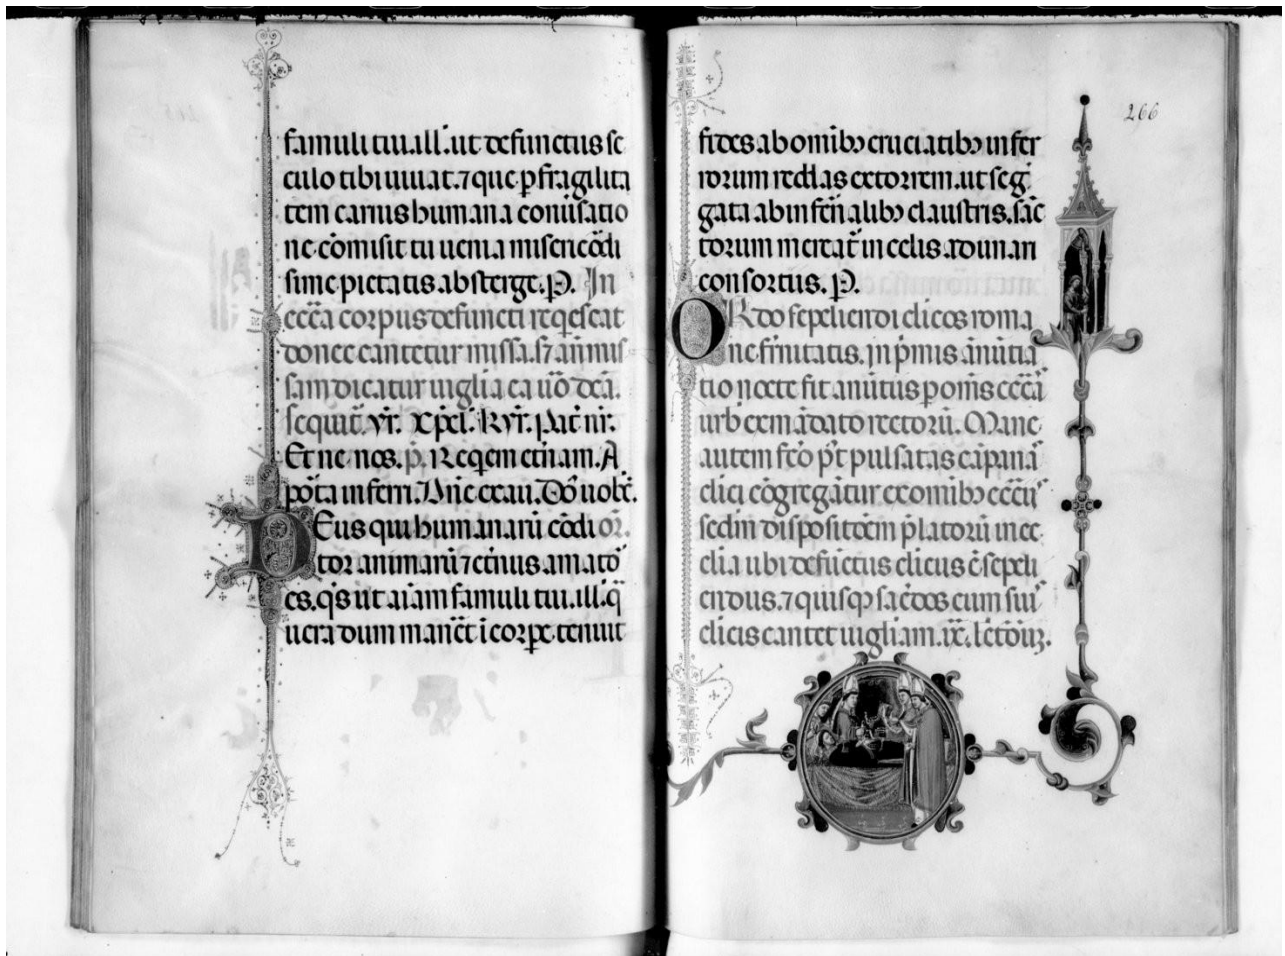 famuli tui. ill. ut defunctus se
culo tibi uiuat. ⁊ que p̱ fragilita
tem carnis humana conūsatio
ne cōmisit tu uenia misericōdi
sime pietatis absterge. P. In
ecc̄a corpus defuncti req̄escat
donec cantetur missa.
sam dicatur uiglia ea uō dc̄a.
sequit̄. Vr̄. Xp̄el. Kyr̄. Pat̄ nr̄.
Et ne nos. p̄. Req̄em etn̄am. A
pōta inferi. Dn̄e exau. Dō uobc̄.
Deus qui humanarū cōdi or̄.
tor animarū ⁊ et̄nus amatō
es. q̄s ut aīam famuli tui. ill. q̄
uera dum manēt ī corꝑe. tenuit
266
fides ab omībꝫ cruciatibꝫ infer
rorum reddas extorrem. ut seḡ
gata ab infēn alibꝫ claustris. sāc
torum mereat̄ in celis adunari
consortiis. P.
ORdo sepeliendi clīcos roma
ne fr̄nitatis. in p̄mis ānūtia
tio nocte fit
urb̄ ex mādato rectorū. Mane
autem fcō p̄t pulsatas cāpanā
clici cōgregāntur ex omībꝫ ecc̄ii
sedm̄ dispositōem p̄latorū in ec
clia ubi defūctus clicus ē sepeli
endus. ⁊ quisqꝫ sac̄dos cum sui
clicis cantet uigliam. ix. lc̄tōnꝝ.